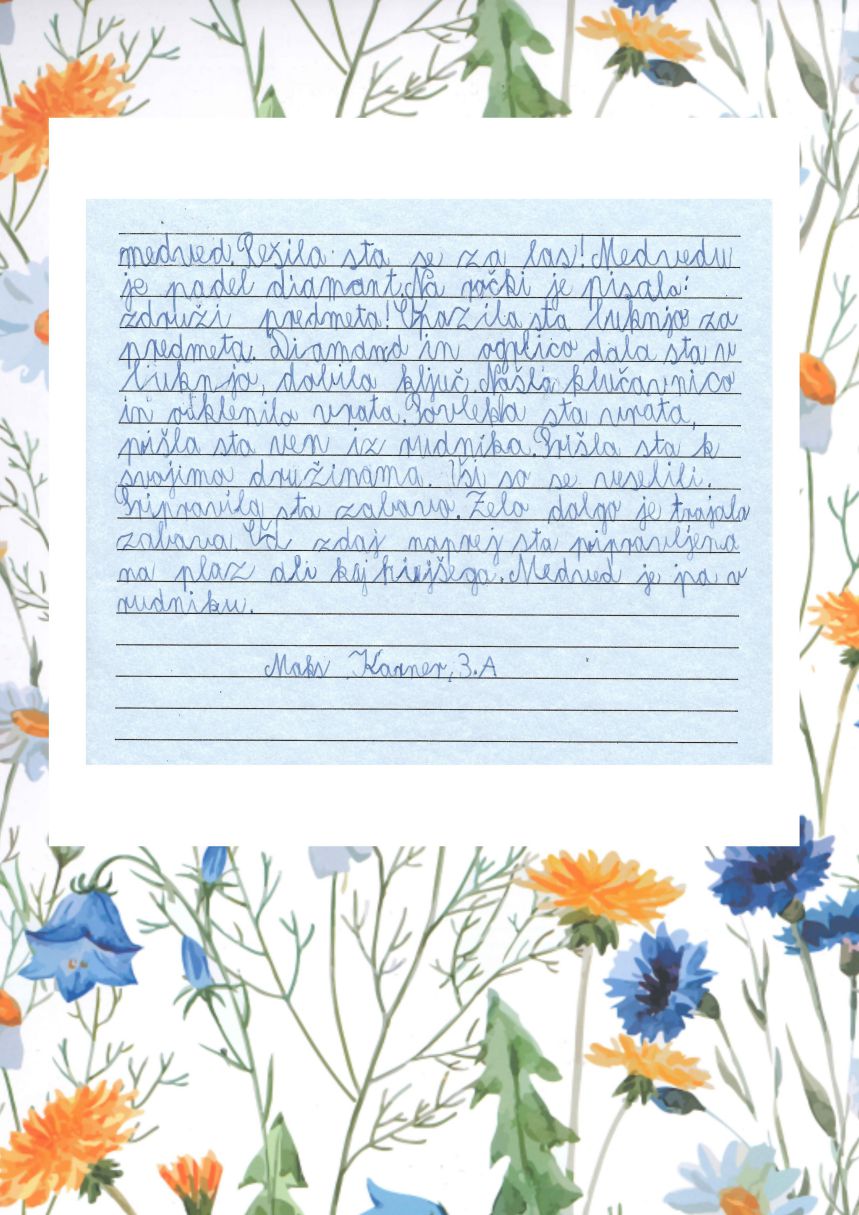 medved. Režila sta se za las! Medvedu
je padel diamant. Na rački je pisalo:
združi predmeta! Opazila sta luknjo za
predmeta. Diamand in ogrlico dala sta v
luknjo, dobila ključ. Našla klučavnico
in otklenila vrata. Povlekla sta vrata,
prišla sta ven iz rudnika. Prišla sta k
svojima družinama. Vsi so se veselili.
Pripravila sta zabavo. Zelo dolgo je trajala
zabava. Od zdaj naprej sta pripravljena
na plaz ali kaj hujšega. Medved je pa v
rudniku.
Maks Karner, 3.A